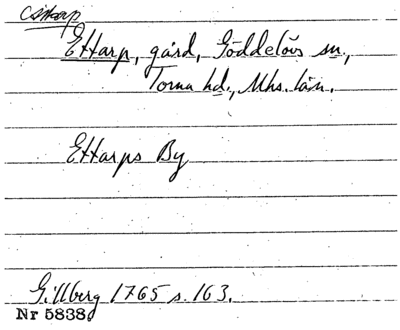 Ettarp
Ettarp, gård, Göddelövs sn,
Torna hd., Mhs. län.
Ettarps By
Gillberg 1765 s. 163.
Nr 5838